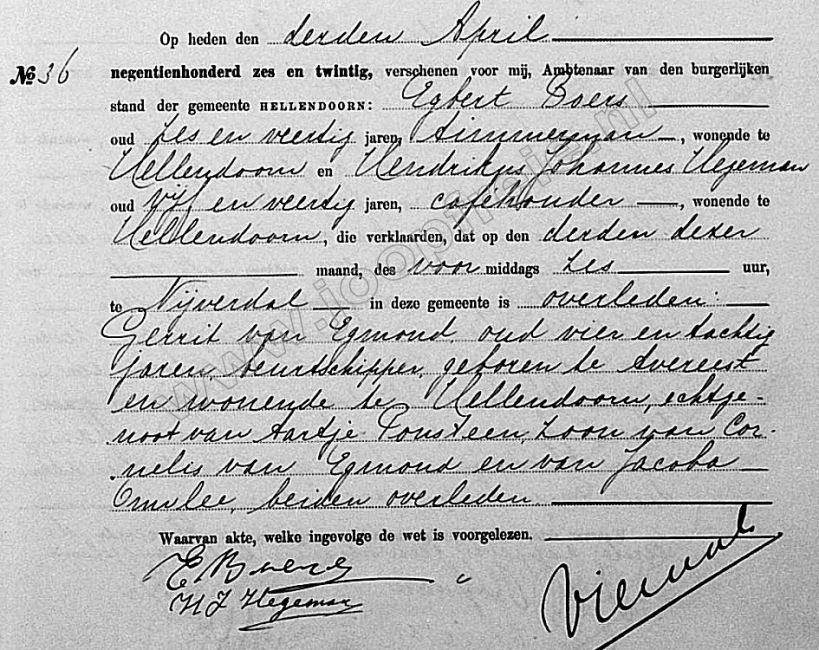 Op heden den derden April
№ 36 negentienhonderd zes en twintig, verschenen voor mij, Ambtenaar van den burgerlijken
stand der gemeente HELLENDOORN: Egbert Boers
oud zes en veertig jaren, timmerman, wonende te
Hellendoorn en Hendrikus Johannes Hegeman
oud vijf en veertig jaren, cafehouder, wonende te
Hellendoorn, die verklaarden, dat op den derden dezer
maand, des voor middags zes uur,
te Nijverdal in deze gemeente is overleden:
Gerrit van Egmond, oud vier en tachtig
jaren, beurtschipper, geboren te Avereest
en wonende te Hellendoorn, echtge-
noot van Aartje Ponsteen, zoon van Cor-
nelis van Egmond en van Jacoba
Omlee, beiden overleden
Waarvan akte, welke ingevolge de wet is voorgelezen.
E Boers
H J Hegeman